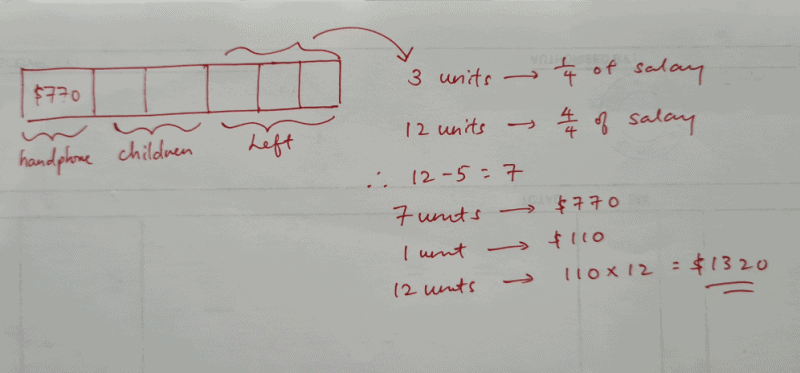 $770
handphone children Left
3 units → 1/4 of salary
12 units → 4/4 of salary
∴ 12 - 5 = 7
7 units → $770
1 unit → $110
12 units → 110 × 12 = $1320